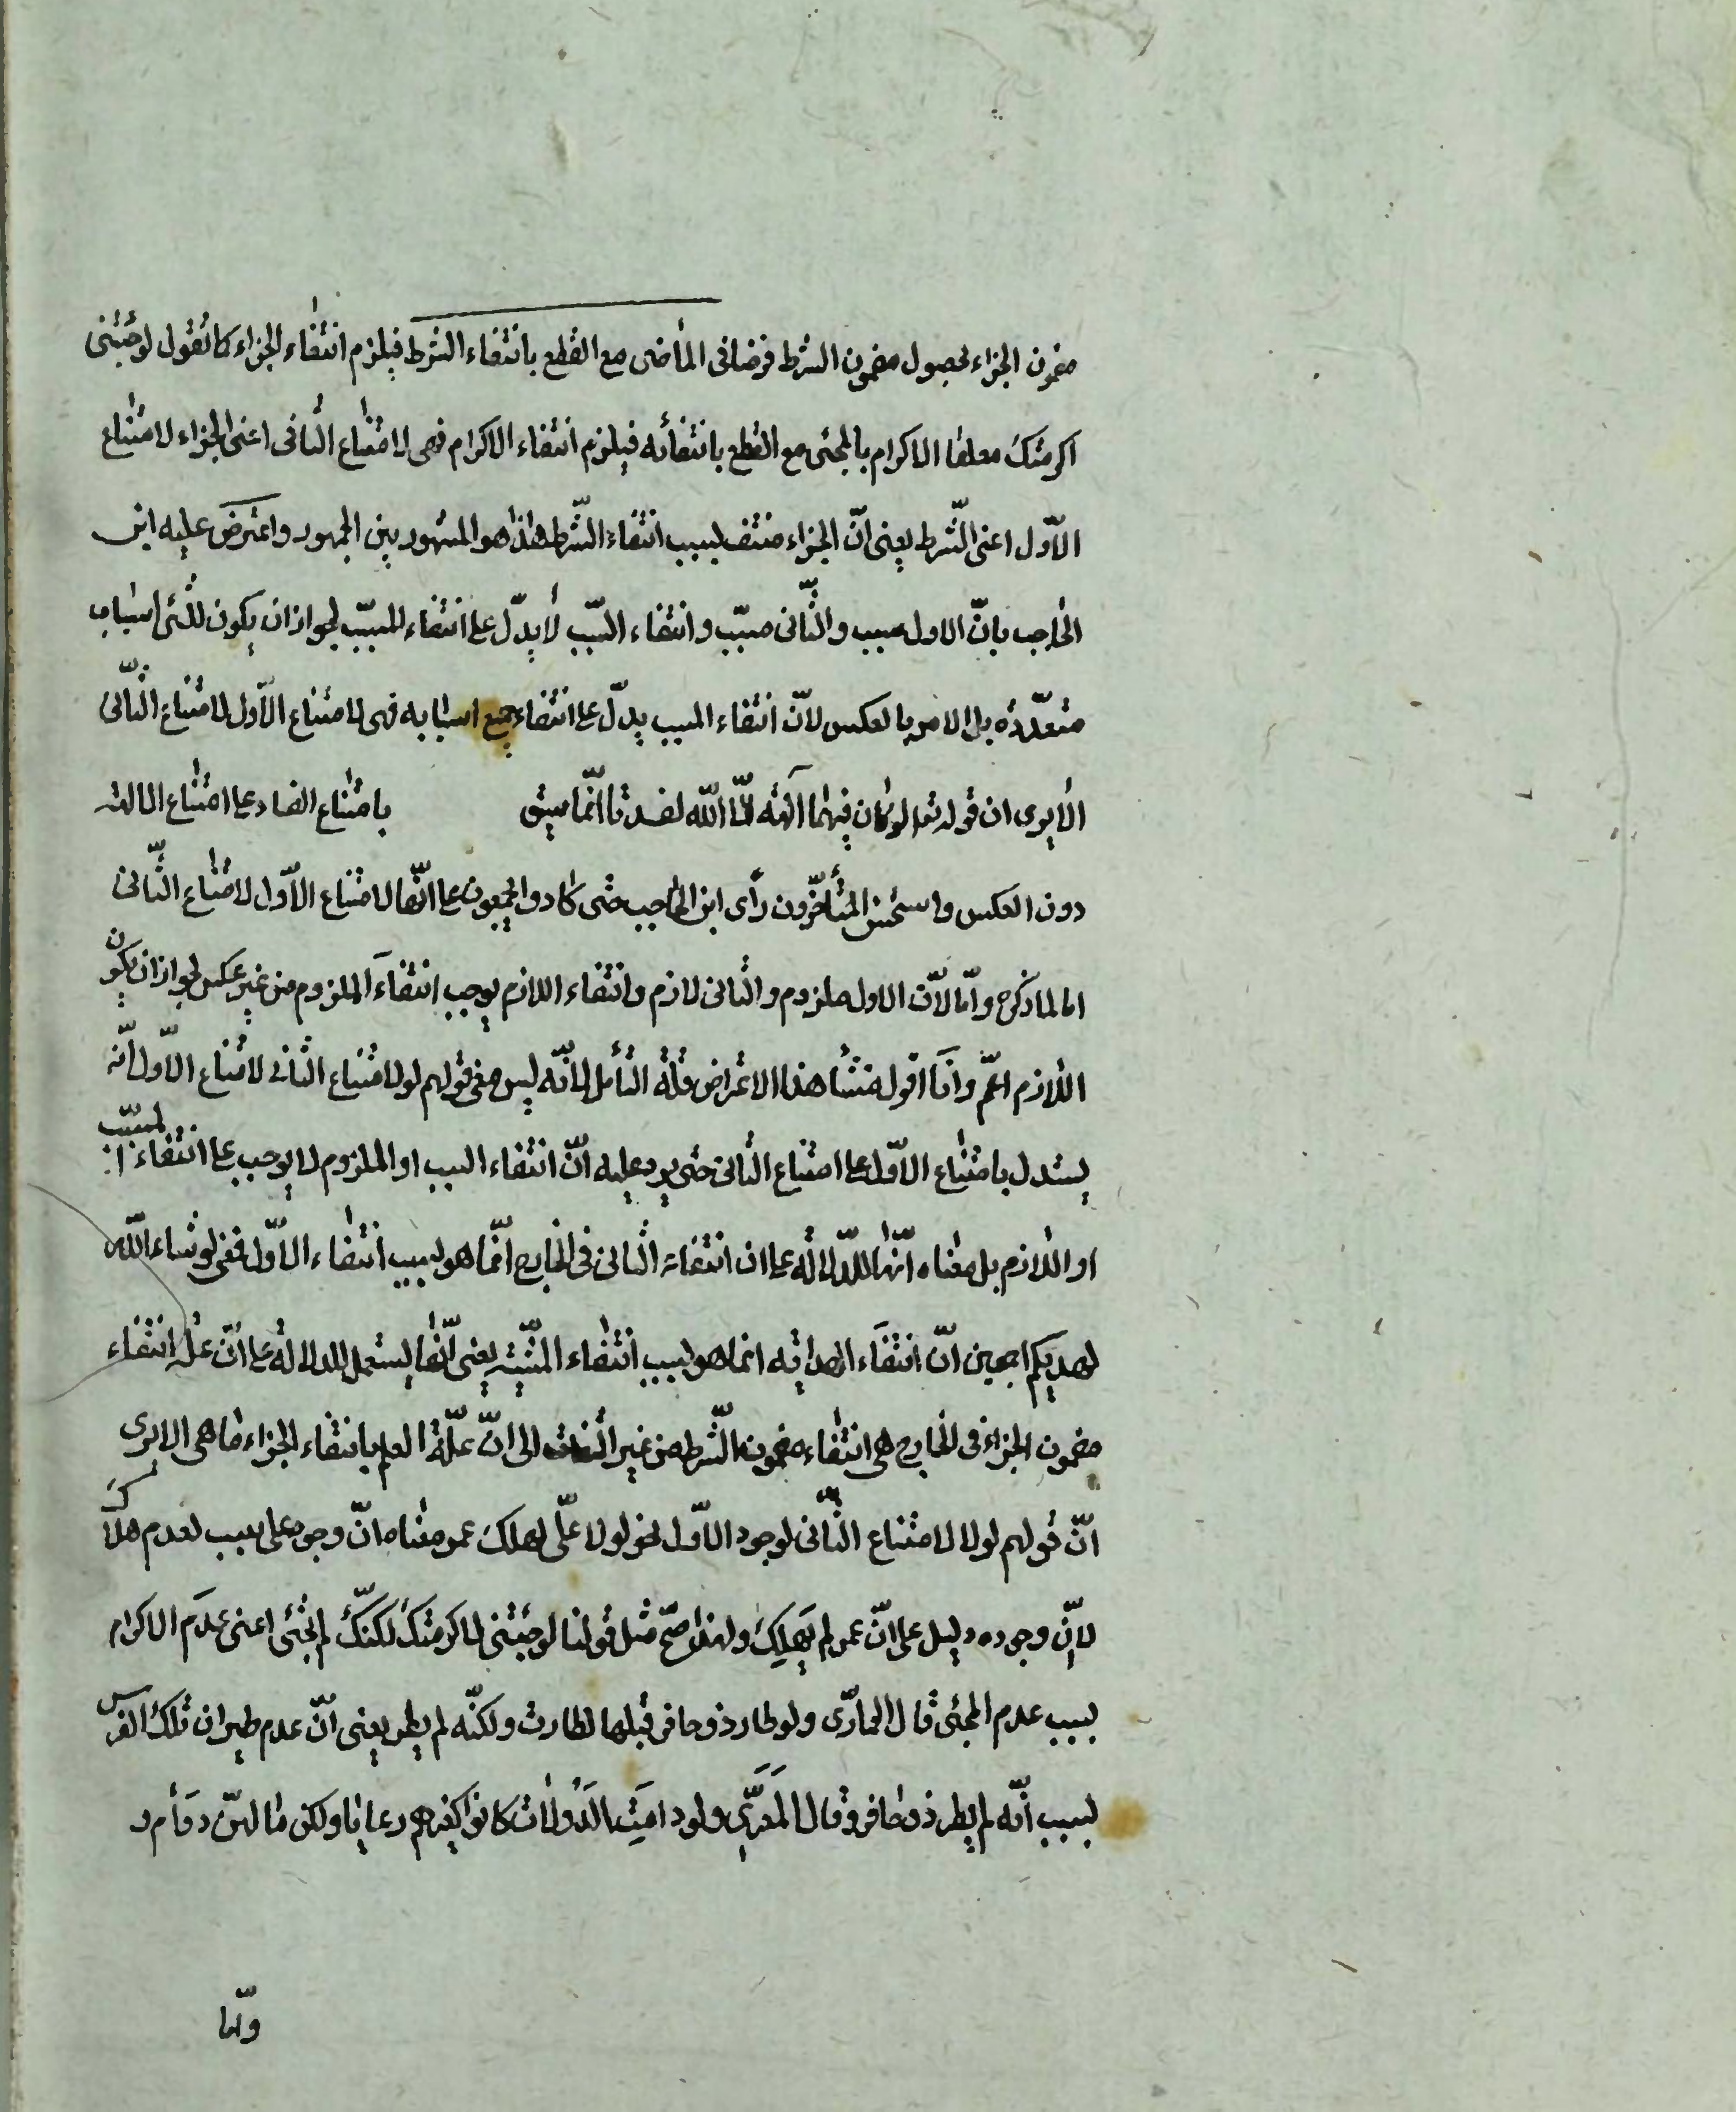 مضمون الجزاء لحصول مضمون الشرط فرضا فى الماضى مع القطع بانتفاء الشرط فيلزم انتفاء الجزاء كما تقول لو جئتنى
اكرمتك معلقا الاكرام بالمجئ مع القطع بانتفائه فيلزم انتفاء الاكرام فهى لامتناع الثانى اعنى الجزاء لامتناع
الاوّل اعنى الشّرط يعنى انّ الجزاء منتف لسبب انتفاء الشّرط هذا هو المشهور بين الجمهور واعترض عليه ابن
الحاجب بانّ الاول سبب والثّانى مسبّب وانتفاء السّبب لا يدّل على انتفاء المسبّب لجواز ان يكون للشئ اسباب
متعدّدة بل الامر بالعكس لانّ انتفاء المسبب يدلّ على انتفاء جميع اسبابه فهى لامتناع الاوّل لامتناع الثّانى
الا يرى ان قوله تعالى لو كان فيهما آلهة الّا اللّه لفسدتا انّما سيق بامتناع الفساد على امتناع الالهة
دون العكس واستحسن المتأخّرون رأى ابن الحاجب حتّى كادوا يجمعون على انّها لامتناع الاوّل لامتناع الثّانى
اما لما ذكره وامّا لانّ الاول ملزوم والثانى لازم وانتفاء اللازم يوجب انتفاء الملزوم من غير عكس لجواز ان يكون
اللازم اعمّ وانا اقول منشأ هذا الاعتراض قلّة التأمل لانّه ليس معنى قولهم لو لامتناع الثانى لامتناع الاوّل انّه
يستدل بامتناع الاوّل على امتناع الثانى حتى يرد عليه انّ انتفاء السبب او الملزوم لا يوجب على انتفاء المسبّب
او اللازم بل معناه انّها للدّلالة على ان انتفاء الثانى فى الخارج انّما هو لسبب انتفاء الاوّل فمعنى لو شاء اللّه
لهديكم اجمعين انّ انتفاء الهداية انما هو لسبب انتفاء المشيّة يعنى انّها يستعمل للدلالة على انّ علّة انتفاء
مضمون الجزاء فى الخارج هى انتفاء مضمون الشّرط من غير التفات الى انّ علّة العلم بانتفاء الجزاء ما هى الا يرى
انّ قولهم لولا لامتناع الثّانى لوجود الاوّل نحو لولا علّى لهلك عمر معناه انّ وجود على سبب لعدم هلاك
لانّ وجوده دليل على انّ عمر لم يهلك ولهذا صحّ مثل قولنا لو جئتنى لاكرمتك لكنّك لم تجئ اعنى عدم الاكرام
بسبب عدم المجئ قال الحماسّى ولو طار ذو حافر قبلها لطارت ولكنّه لم يطر يعنى انّ عدم طيران تلك الفرس
لسبب انّه لم يطر ذو حافر وقال المعرّى ولو دامت الدّولات كانوا كغيرهم رعايا ولكن ما لهنّ دوام و
وامّا